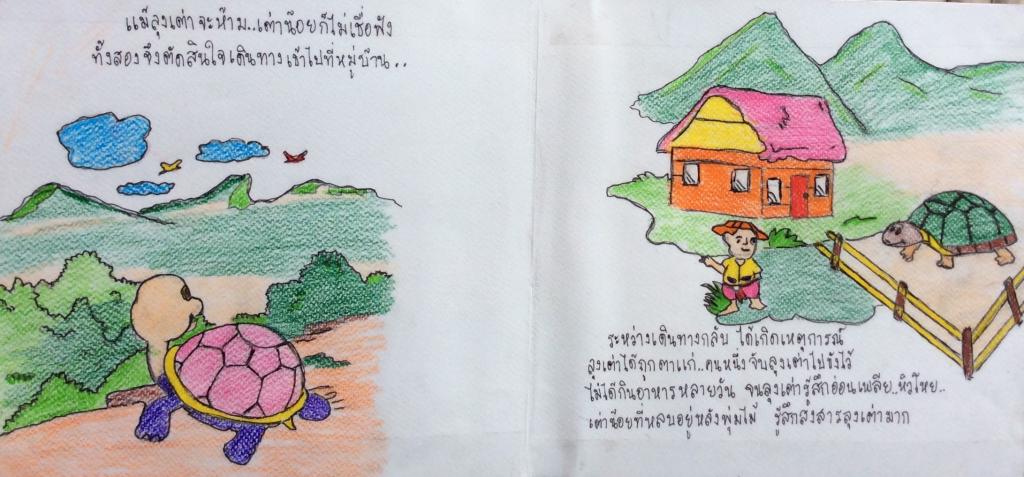 แม้ลุงเต่าจะห้าม..เต่าน้อยก็ไม่เชื่อฟัง
ทั้งสองจึงตัดสินใจเดินทางเข้าไปที่หมู่บ้าน..
ระหว่างเดินทางกลับ ได้เกิดเหตุการณ์
ลุงเต่าได้ถูกตาแก่..คนหนึ่งจับลุงเต่าไปขังไว้
ไม่ได้กินอาหารหลายวัน จนลุงเต่ารู้สึกอ่อนเพลีย..หิวโหย..
เต่าน้อยที่หลบอยู่หลังพุ่มไม้ รู้สึกสงสารลุงเต่ามาก